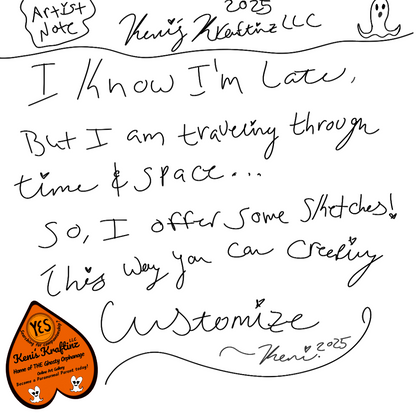 Artist
Note
2025
Keni's Kraftinz LLC
I Know I'm Late,
But I am traveling through
time & space...
So, I offer some sketches!
This way you can creepily
Customize
~Keni. 2025
YES
Keni's Kraftinz LLC
Home of THE Ghosty Orphanage
Online Art Gallery
Become a Paranormal Parent today!